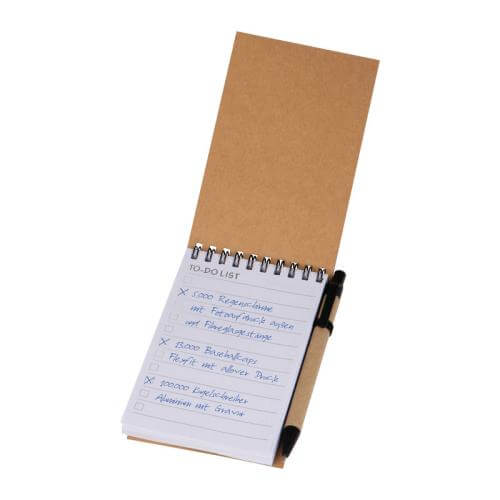 TO-DO LIST
5.000 Regenschirme
mit Fotoaufdruck außen
und Fiberglasgestänge
15.000 Baseballcaps
Flexfit mit allover Druck
200.000 Kugelschreiber
Aluminium mit Gravur